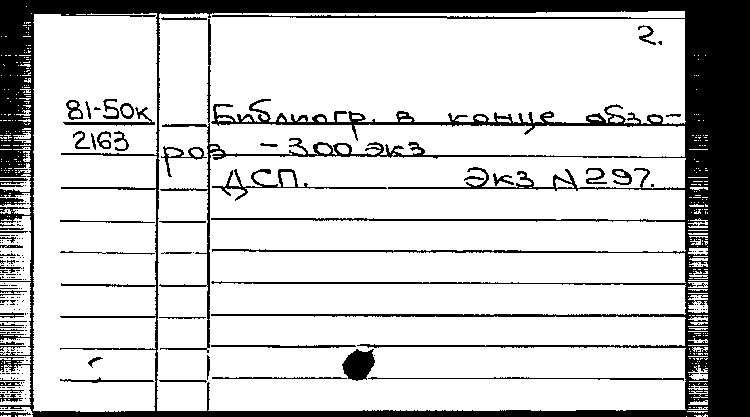 2.
81-50к Библиогр. в конце обзо-
2163 ров – 300 экз
ДСП. Экз N 297.